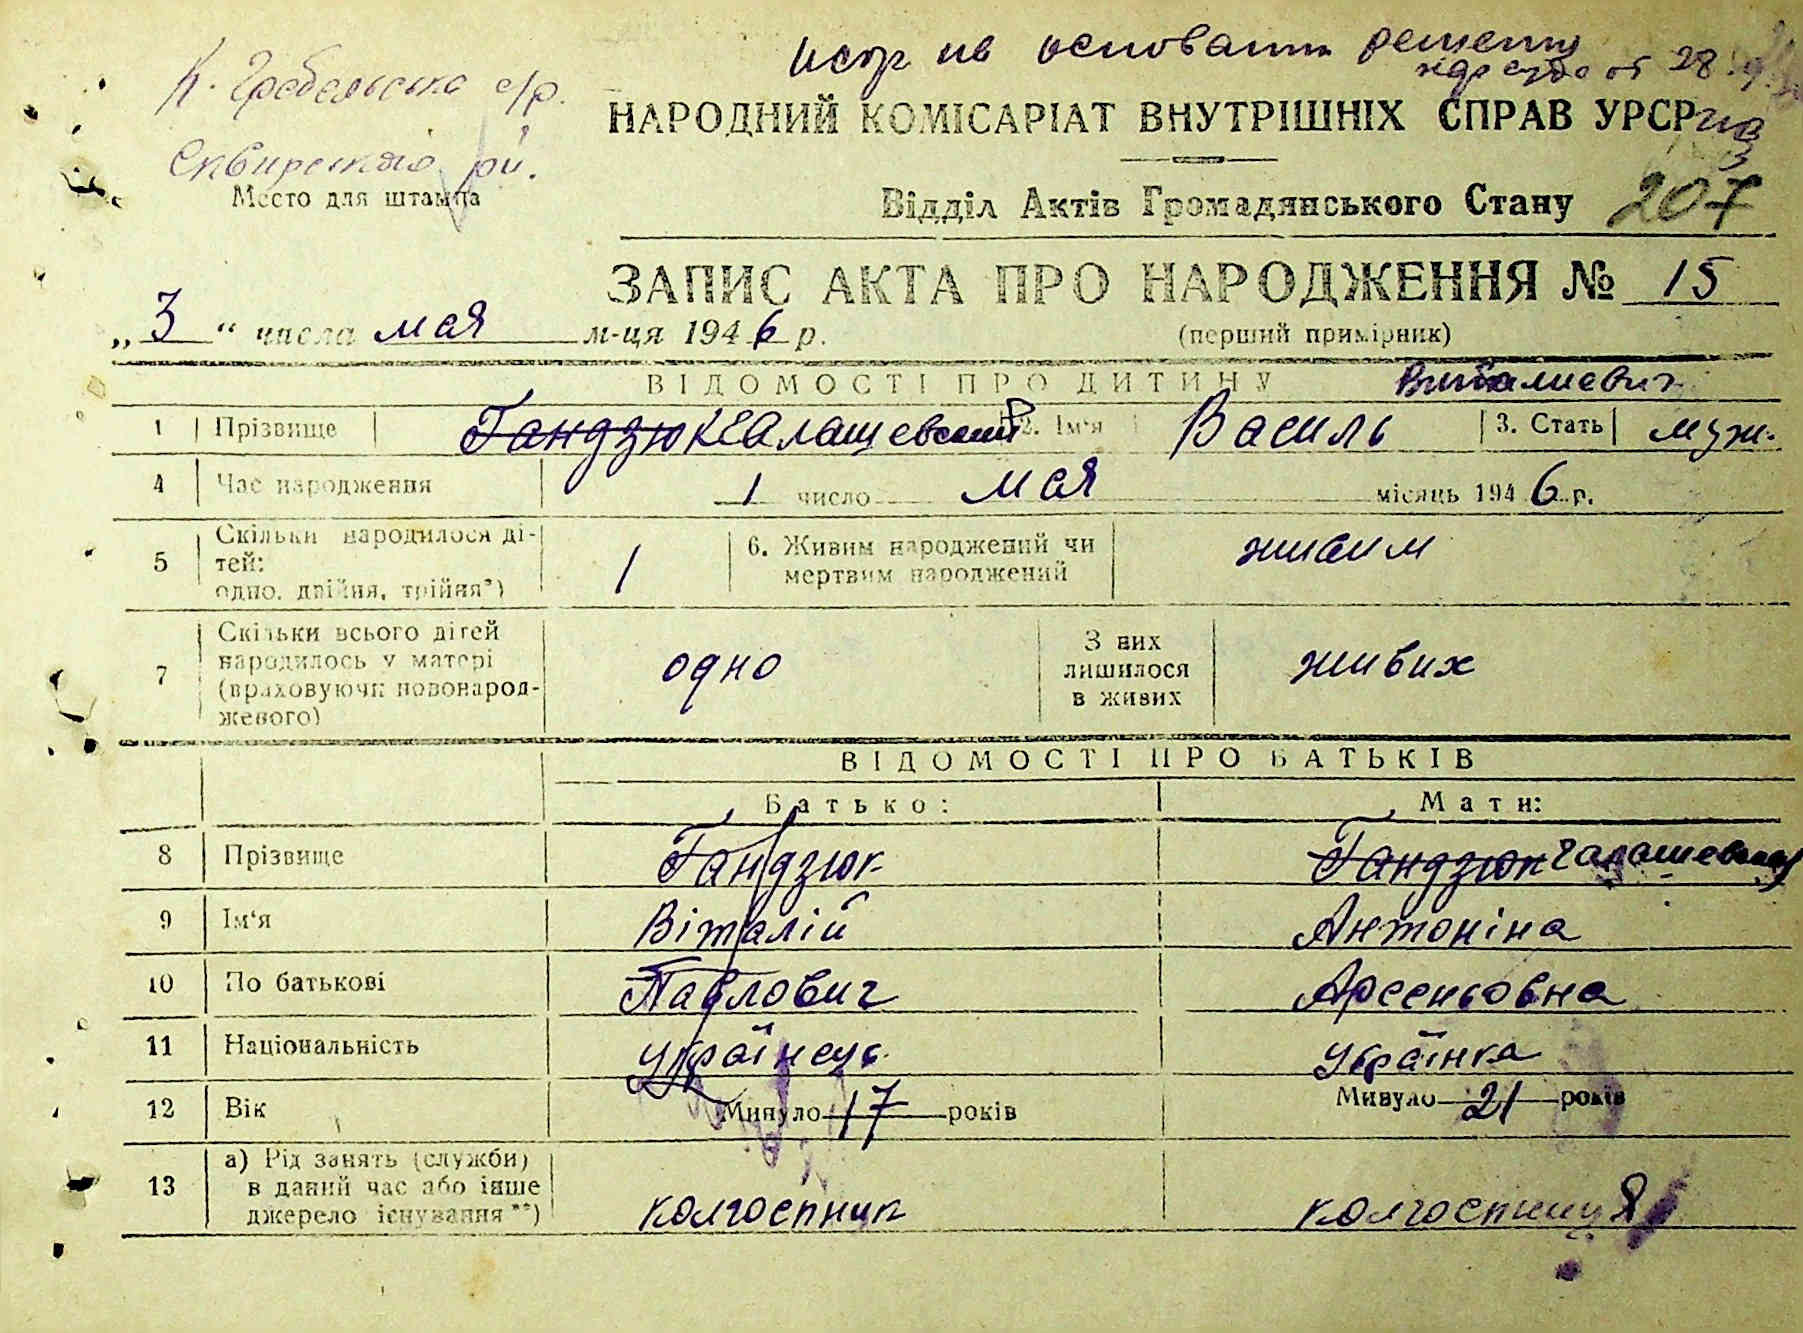 испр на основании решения
нарсуда от 28
К. Гребельська с/р.
Сквирского р-н.
Место для штампа
НАРОДНИЙ КОМІСАРІАТ ВНУТРІШНІХ СПРАВ УРСР
Відділ Актів Громадянського Стану 207
ЗАПИС АКТА ПРО НАРОДЖЕННЯ № 15
„3“ числа мая м-ця 1946 р.
(перший примірник)
ВІДОМОСТІ ПРО ДИТИНУ Виталиевич
1 Прізвище Гандзюк Галашевский 2. Ім'я Василь 3. Стать муж.
4 Час народження 1 число мая місяць 1946 р.
5 Скільки народилося ді-
тей:
одно, двійня, трійня*) 1 6. Живим народжений чи
мертвим народжений живим
7 Скільки всього дітей
народилось у матері
(враховуючи новонарод-
женого) одно З них
лишилося
в живих живих
ВІДОМОСТІ ПРО БАТЬКІВ
Батько: Мати:
8 Прізвище Гандзюк Гандзюк Галашевская
9 Ім'я Віталій Антоніна
10 По батькові Павлович Арсеньовна
11 Національність Українець Українка
12 Вік Минуло 17 років Минуло 21 років
13 а) Рід занять (служби)
в даний час або інше
джерело існування**) колгоспник колгоспниця